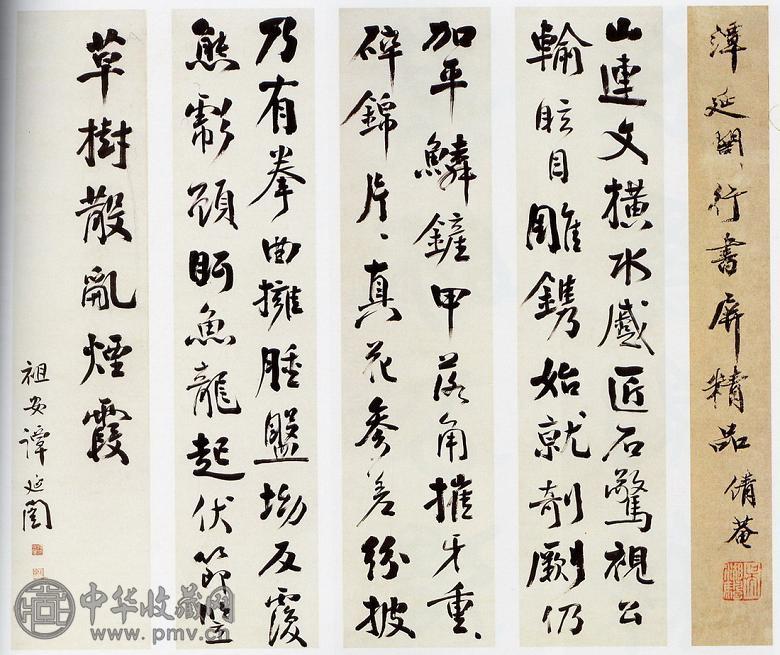 譚延闓行書屏精品 倩菴
山連文橫水蹙匠石驚視公
輸眩目雕鐫始就剞劂仍
加平鱗鏟甲落角摧牙重、
碎錦片、真花參差紛披
乃有拳曲擁腫盤坳反覆
熊彪顧盻魚龍起伏節豎
草樹散亂煙霞
祖安譚延闓
中华收藏网
www.pmv.cn